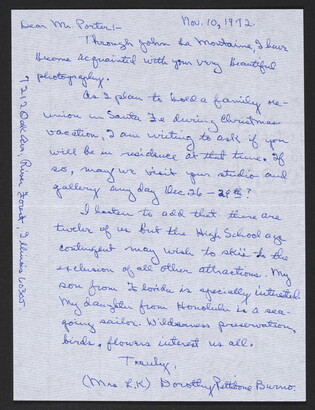 Nov. 10, 1972.
Dear Mr. Porter:-
Through John La Montaine, I have
become acquainted with your very beautiful
photography.
As I plan to hold a family re-
union in Santa Fe during Christmas
vacation, I am writing to ask if you
will be in residence at that time. If
so, may we visit your studio and
gallery any day Dec 26 - 29th?
I hasten to add that there are
twelve of us but the High School age
contingent may wish to ski to the
exclusion of all other attractions. My
son from Florida is specially interested.
My daughter from Honolulu is a sea-
going sailor. Wilderness preservation,
birds, flowers interest us all.
Truly,
(Mrs L.K) Dorothy Pettibone
7212 Oak Ave, River Forest, Illinois 60305